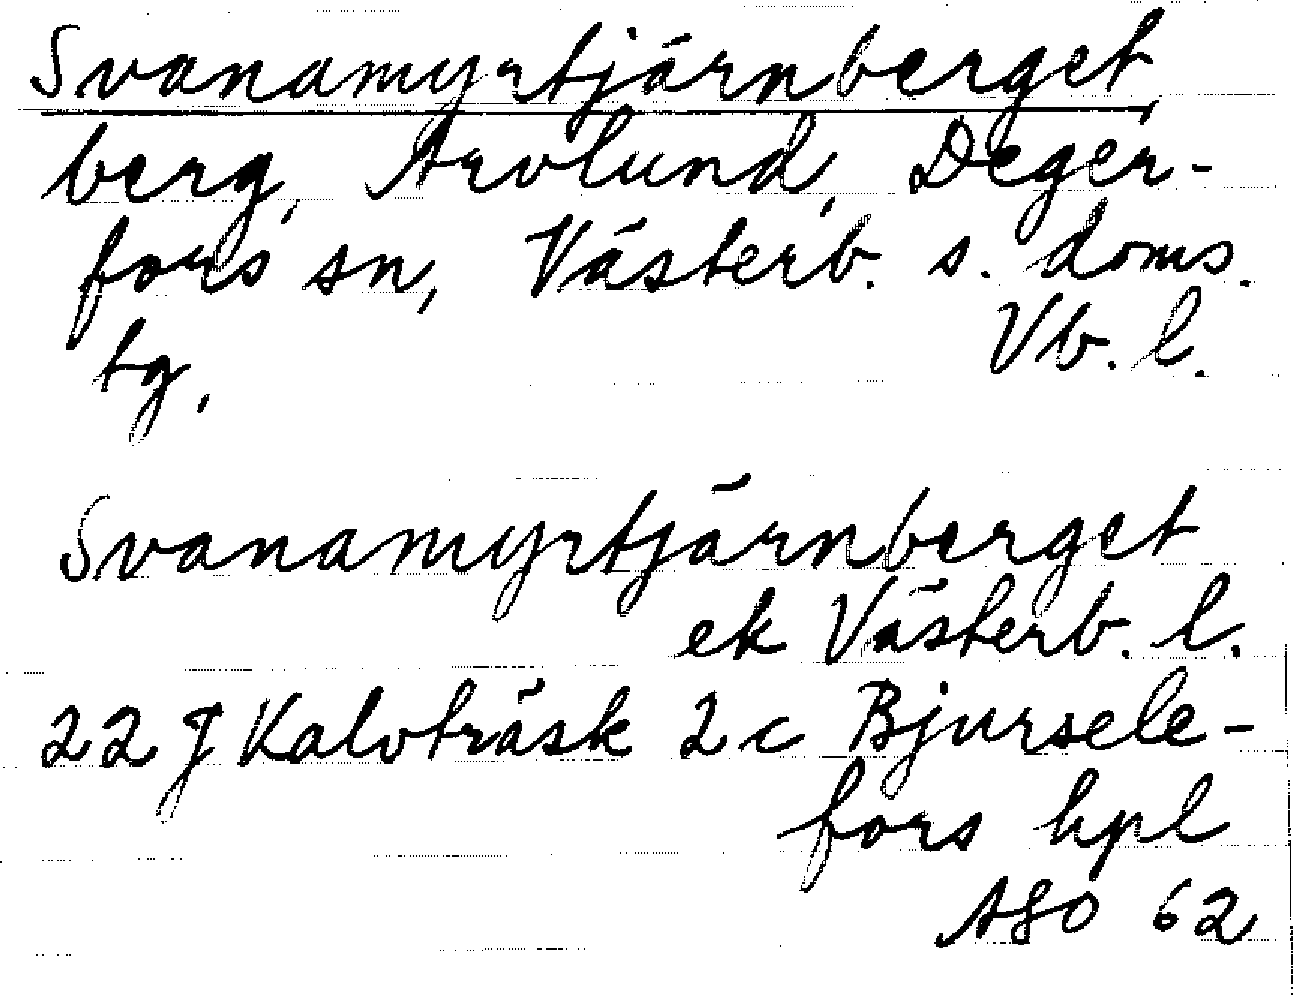 Svanamyrtjärnberget
berg, Arvlund, Deger-
fors sn, Västerb. s. doms.
tg. Vb. l.
Svanamyrtjärnberget
ek Västerb. l.
22 J Kalvträsk 2 c Bjursele-
fors hpl
AGO 62